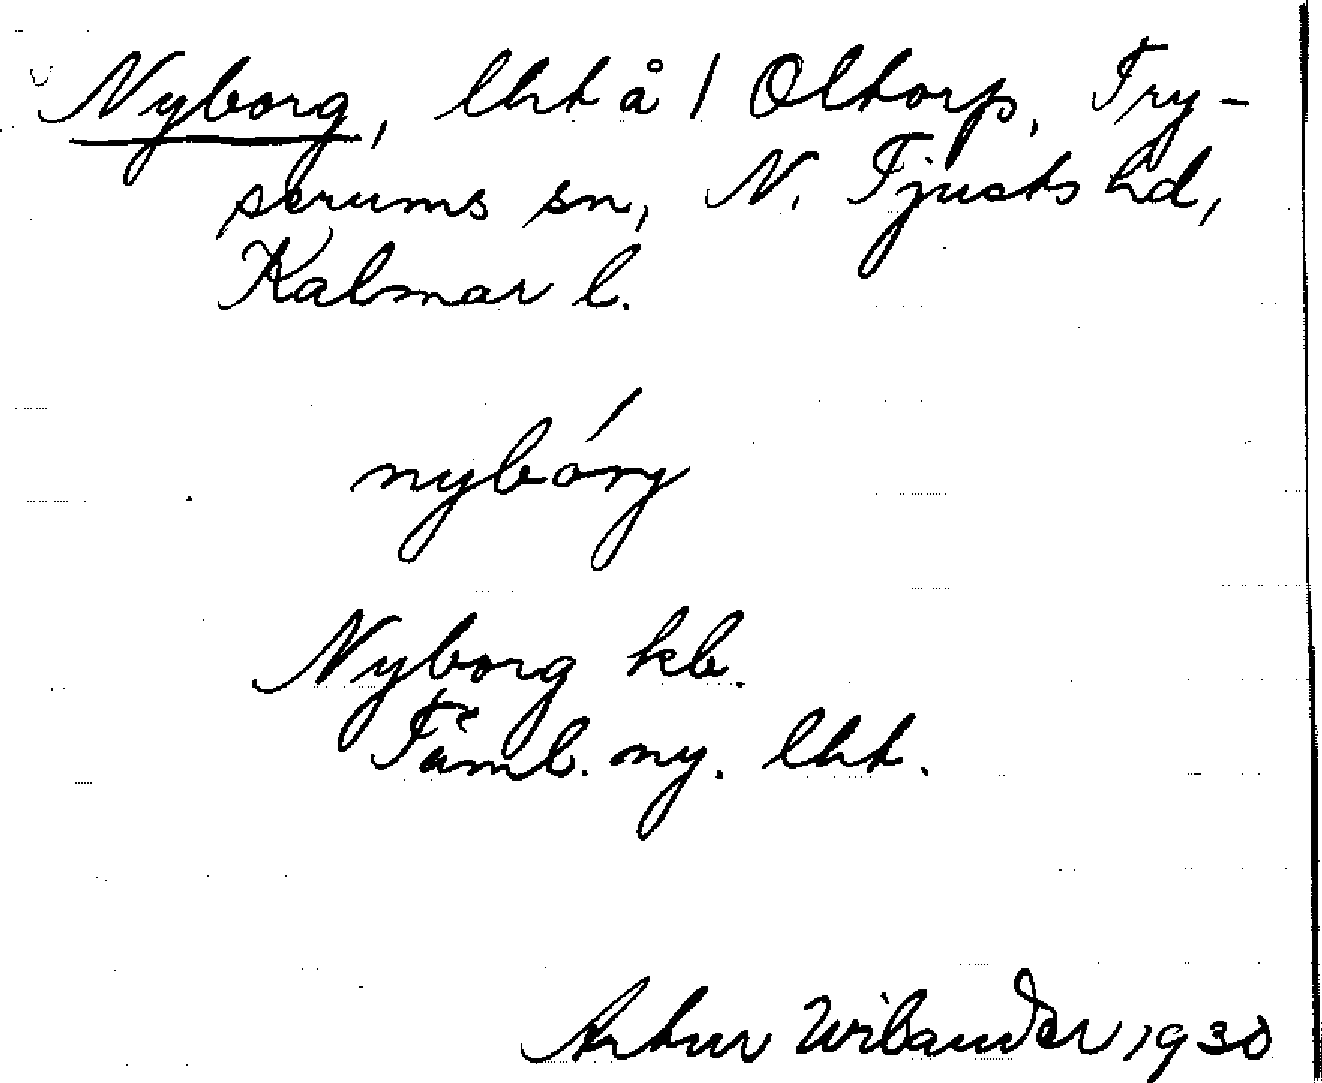 Nyborg, lht å 1 Oltorp, Try-
serums sn, N. Tjusts hd,
Kalmar l.
nybórg
Nyborg kb.
Fämb. ny. lht.
Arthur Wilander 1930